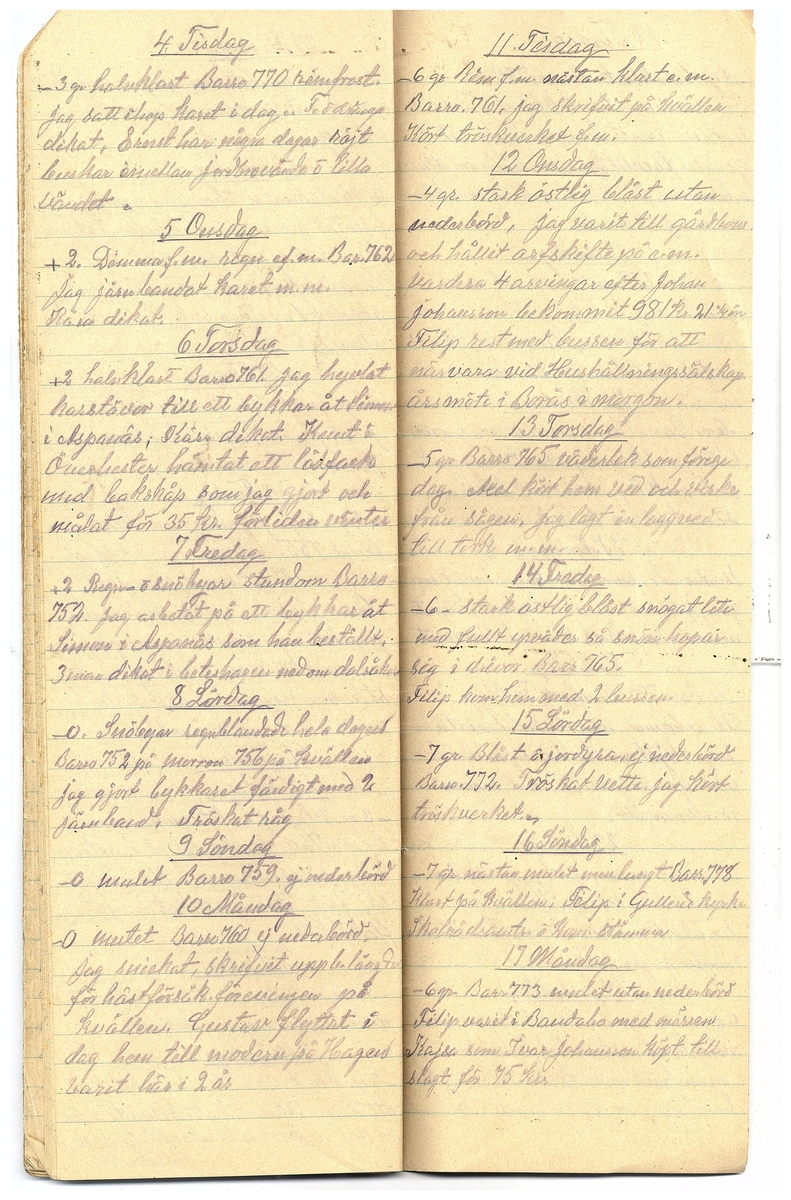 4 Tisdag
-3 gr halvklart Barro 770 rimfrost.
Jag satt ihop karet i dag.
dikat, Ernst har några dagar röjt
buskar emellan ö lilla
vändet.
5 Onsdag
+2. Dimma f.m. regn ef.m. Bar. 762
Jag järnbandat karet m.m.
Kära dikat.
6 Torsdag
+2 halvklart Barro 761. Jag hyvlat
karstävor till ett bykkar åt Simon
i Aspanäs, Kära dikat. Knut i
hämtat ett
med bakskåp som jag gjort och
målat för 35 kr. förliden vinter
7 Fredag
+2 Regn- ö snöbyar stundom Barro
752. Jag arbetat på ett bykkar åt
Simon i Aspanäs som han beställt,
3 man dikat i beteshagen nedom
8 Lördag
-0. Snöbyar regnblandade hela dagen
Barro 752 på morron 756 på kvällen
jag gjort bykkaret färdigt med 2
järnband. Tröskat råg
9 Söndag
-0 mulet Barro 759. ej nederbörd
10 Måndag
-0 mulet Barro 760 ej nederbörd.
Jag snickat, skrifvit
för hästförsäk. föreningen på
kvällen. Gustav flyttat i
dag hem till modern på Hagen
varit här i 2 år
11 Tisdag
-6 gr Rim f.m. nästan klart e.m.
Barro. 761, jag skrifvit på kvällen
Kört tröskverket f.m.
12 Onsdag
-4 gr. stark östlig blåst utan
nederbörd, jag varit till
och hållet arfskifte på e.m.
vardera 4 arvingar efter Johan
Johansson bekommit 981 kr. 21
Filip rest med bussen för att
närvara vid Hushållningssälskap.
årsmöte i Borås i morgon.
13 Torsdag
-5 gr Barro 765 väderlek som förege
dag. Axel kört hem ved och virke
från sågen, jag lagt in huggved
till tork m.m.
14 Fredag
-6- stark östlig blåst snögat lite
med fullt yrväder så snön hopar
sig i drivor Barr 765.
Filip kom hem med 2 bussen.
15 Lördag
-7 gr. Blåst ö jordyra, ej nederbörd
Barro. 772. Tröskat vette. jag kört
tröskverket.
16 Söndag
-7 gr nästan mulet men lugnt Barr. 778
Klart på kvällen. Filip i kyrka
Skolråds ö Kom. Stämma
17 Måndag
-6 gr Barr 773 mulet utan nederbörd
Filip varit i Bandabo med märren
Kajsa som Ivar Johansson köpt till
slagt för 75 kr